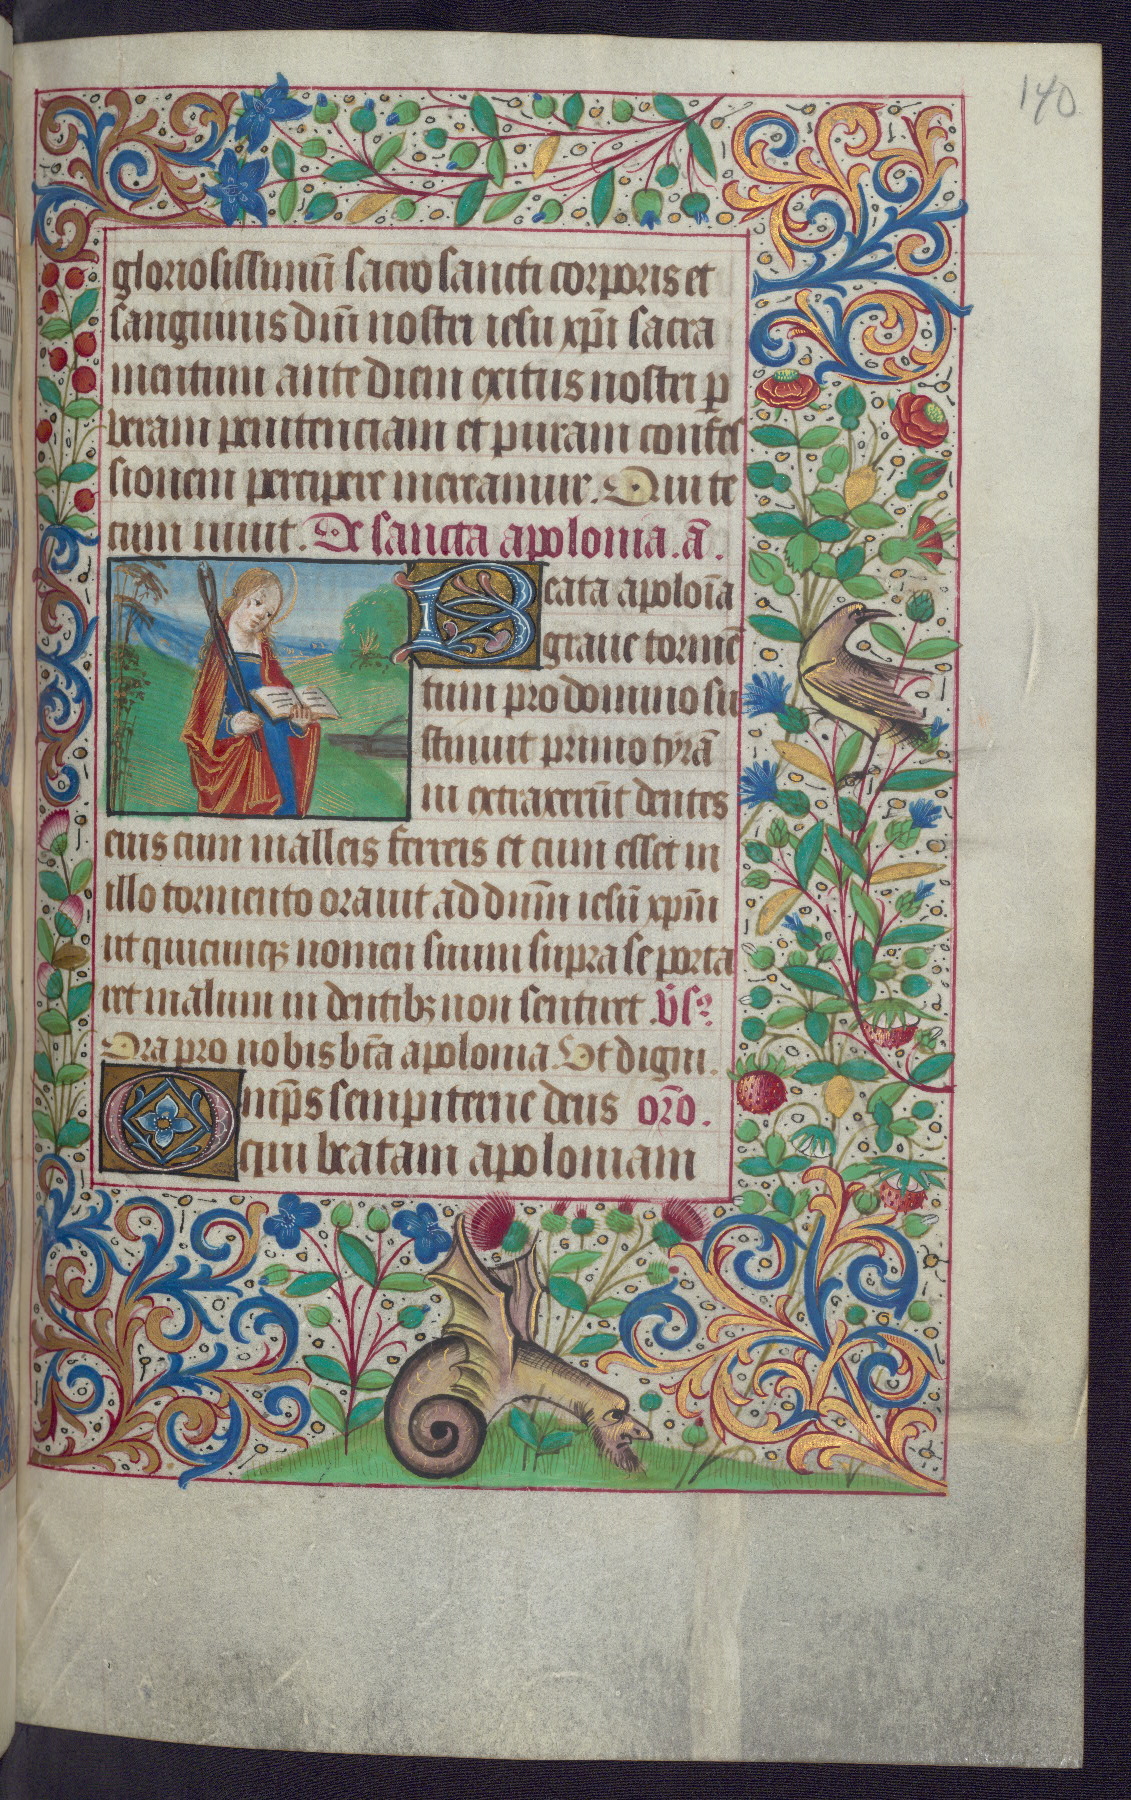 140
gloriosissimū sacro sancti corporis et
sanguinis dn̄i nostri iesu xp̄i sacra
mentum ante diem exitus nostri ꝑ
veram penitenciam et puram confes
sionem percipere mereamur. Qui te
cum viuit. De sancta apolonia. ā.
Beata apolōia
graue tormē
tum pro domino su
stinuit primo tyrā
ni extraxerūt dentes
eius cum malleis ferreis et cum esset in
illo tormento orauit ad dn̄m iesū xp̄m
ut quicūqꝫ nomen suum supra se porta
ret malum in dentibꝫ non sentiret. v̄s
Ora pro nobis bt̄a apolonia. Ut digni.
Omp̄s sempiterne deus or̄o.
qui beatam apoloniam